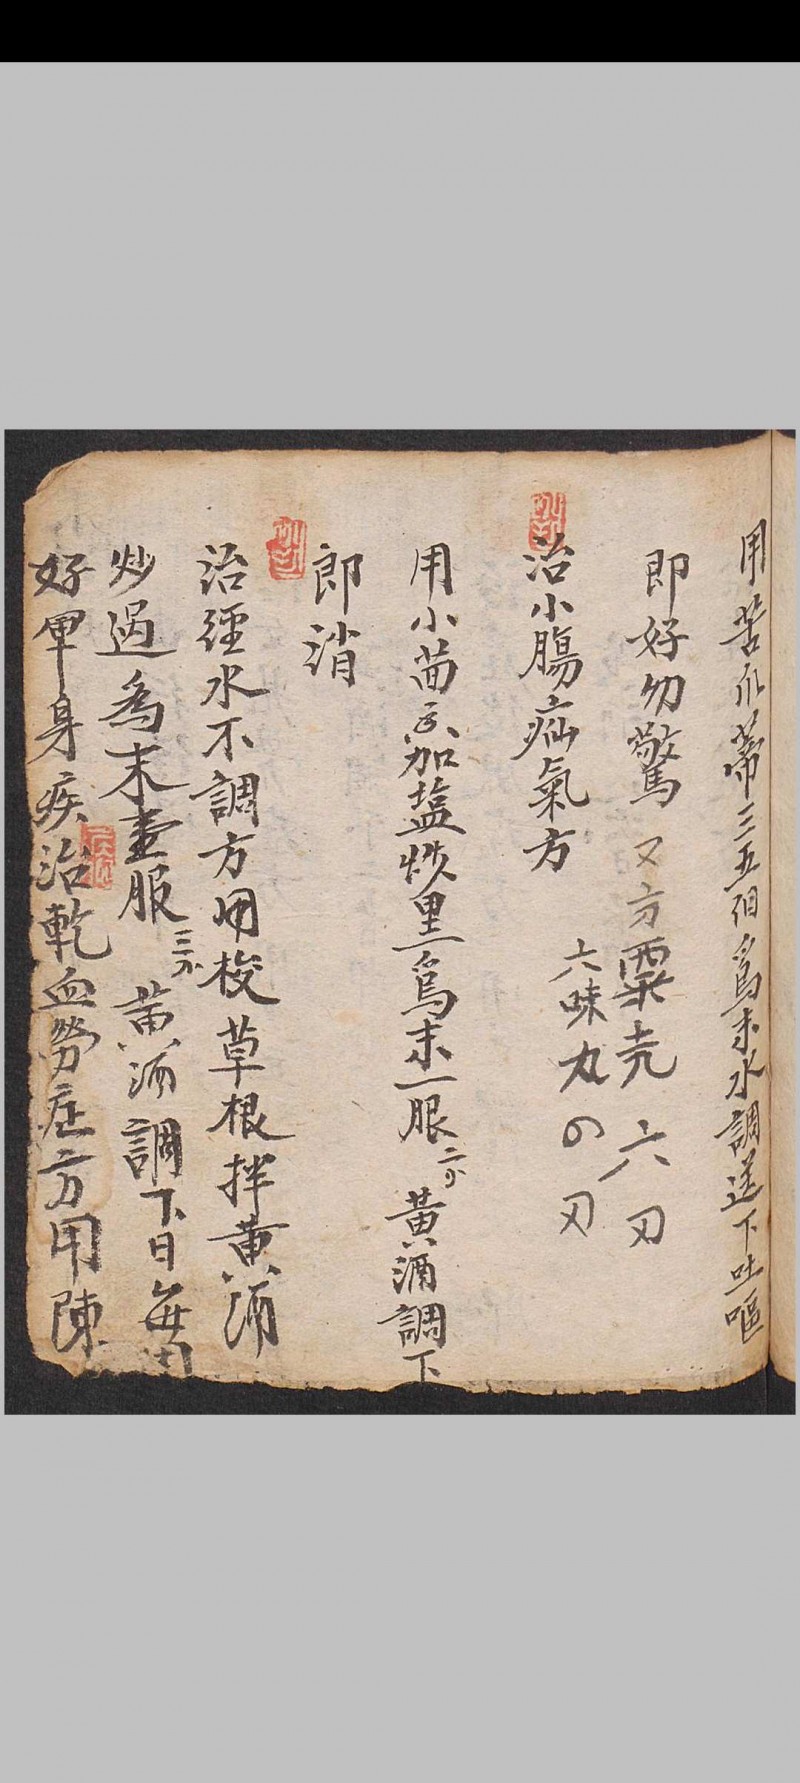 用苦瓜蒂三五個為末水調送下吐嘔
即好勿驚 又方粟壳 六刃
六味丸 〇刃
治小腸疝氣方
用小茴 加塩炒黑為末一服二分 黃酒調下
即消
治經水不調方用 草根拌黃酒
炒過為末壹服三分 黃酒調下日每用
好 身疾治乾血勞症方用陳